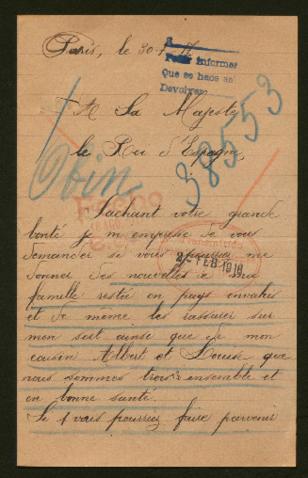 Paris, le 30
Para informar
Que se hace se
Devolveran
A Sa Majesté
le Roi d'Espagne,
38553
Sachant votre grande
bonté je m'empresse de vous
demander si vous pourriez me
donner des nouvelles de ma
famille restée en pays envahis
et de même les rassurer sur
mon sort ainsi que de mon
cousin Albert et Louise que
nous sommes trois ensemble et
en bonne santé.
Si vous pourriez faire parvenir
2 FEB 1918